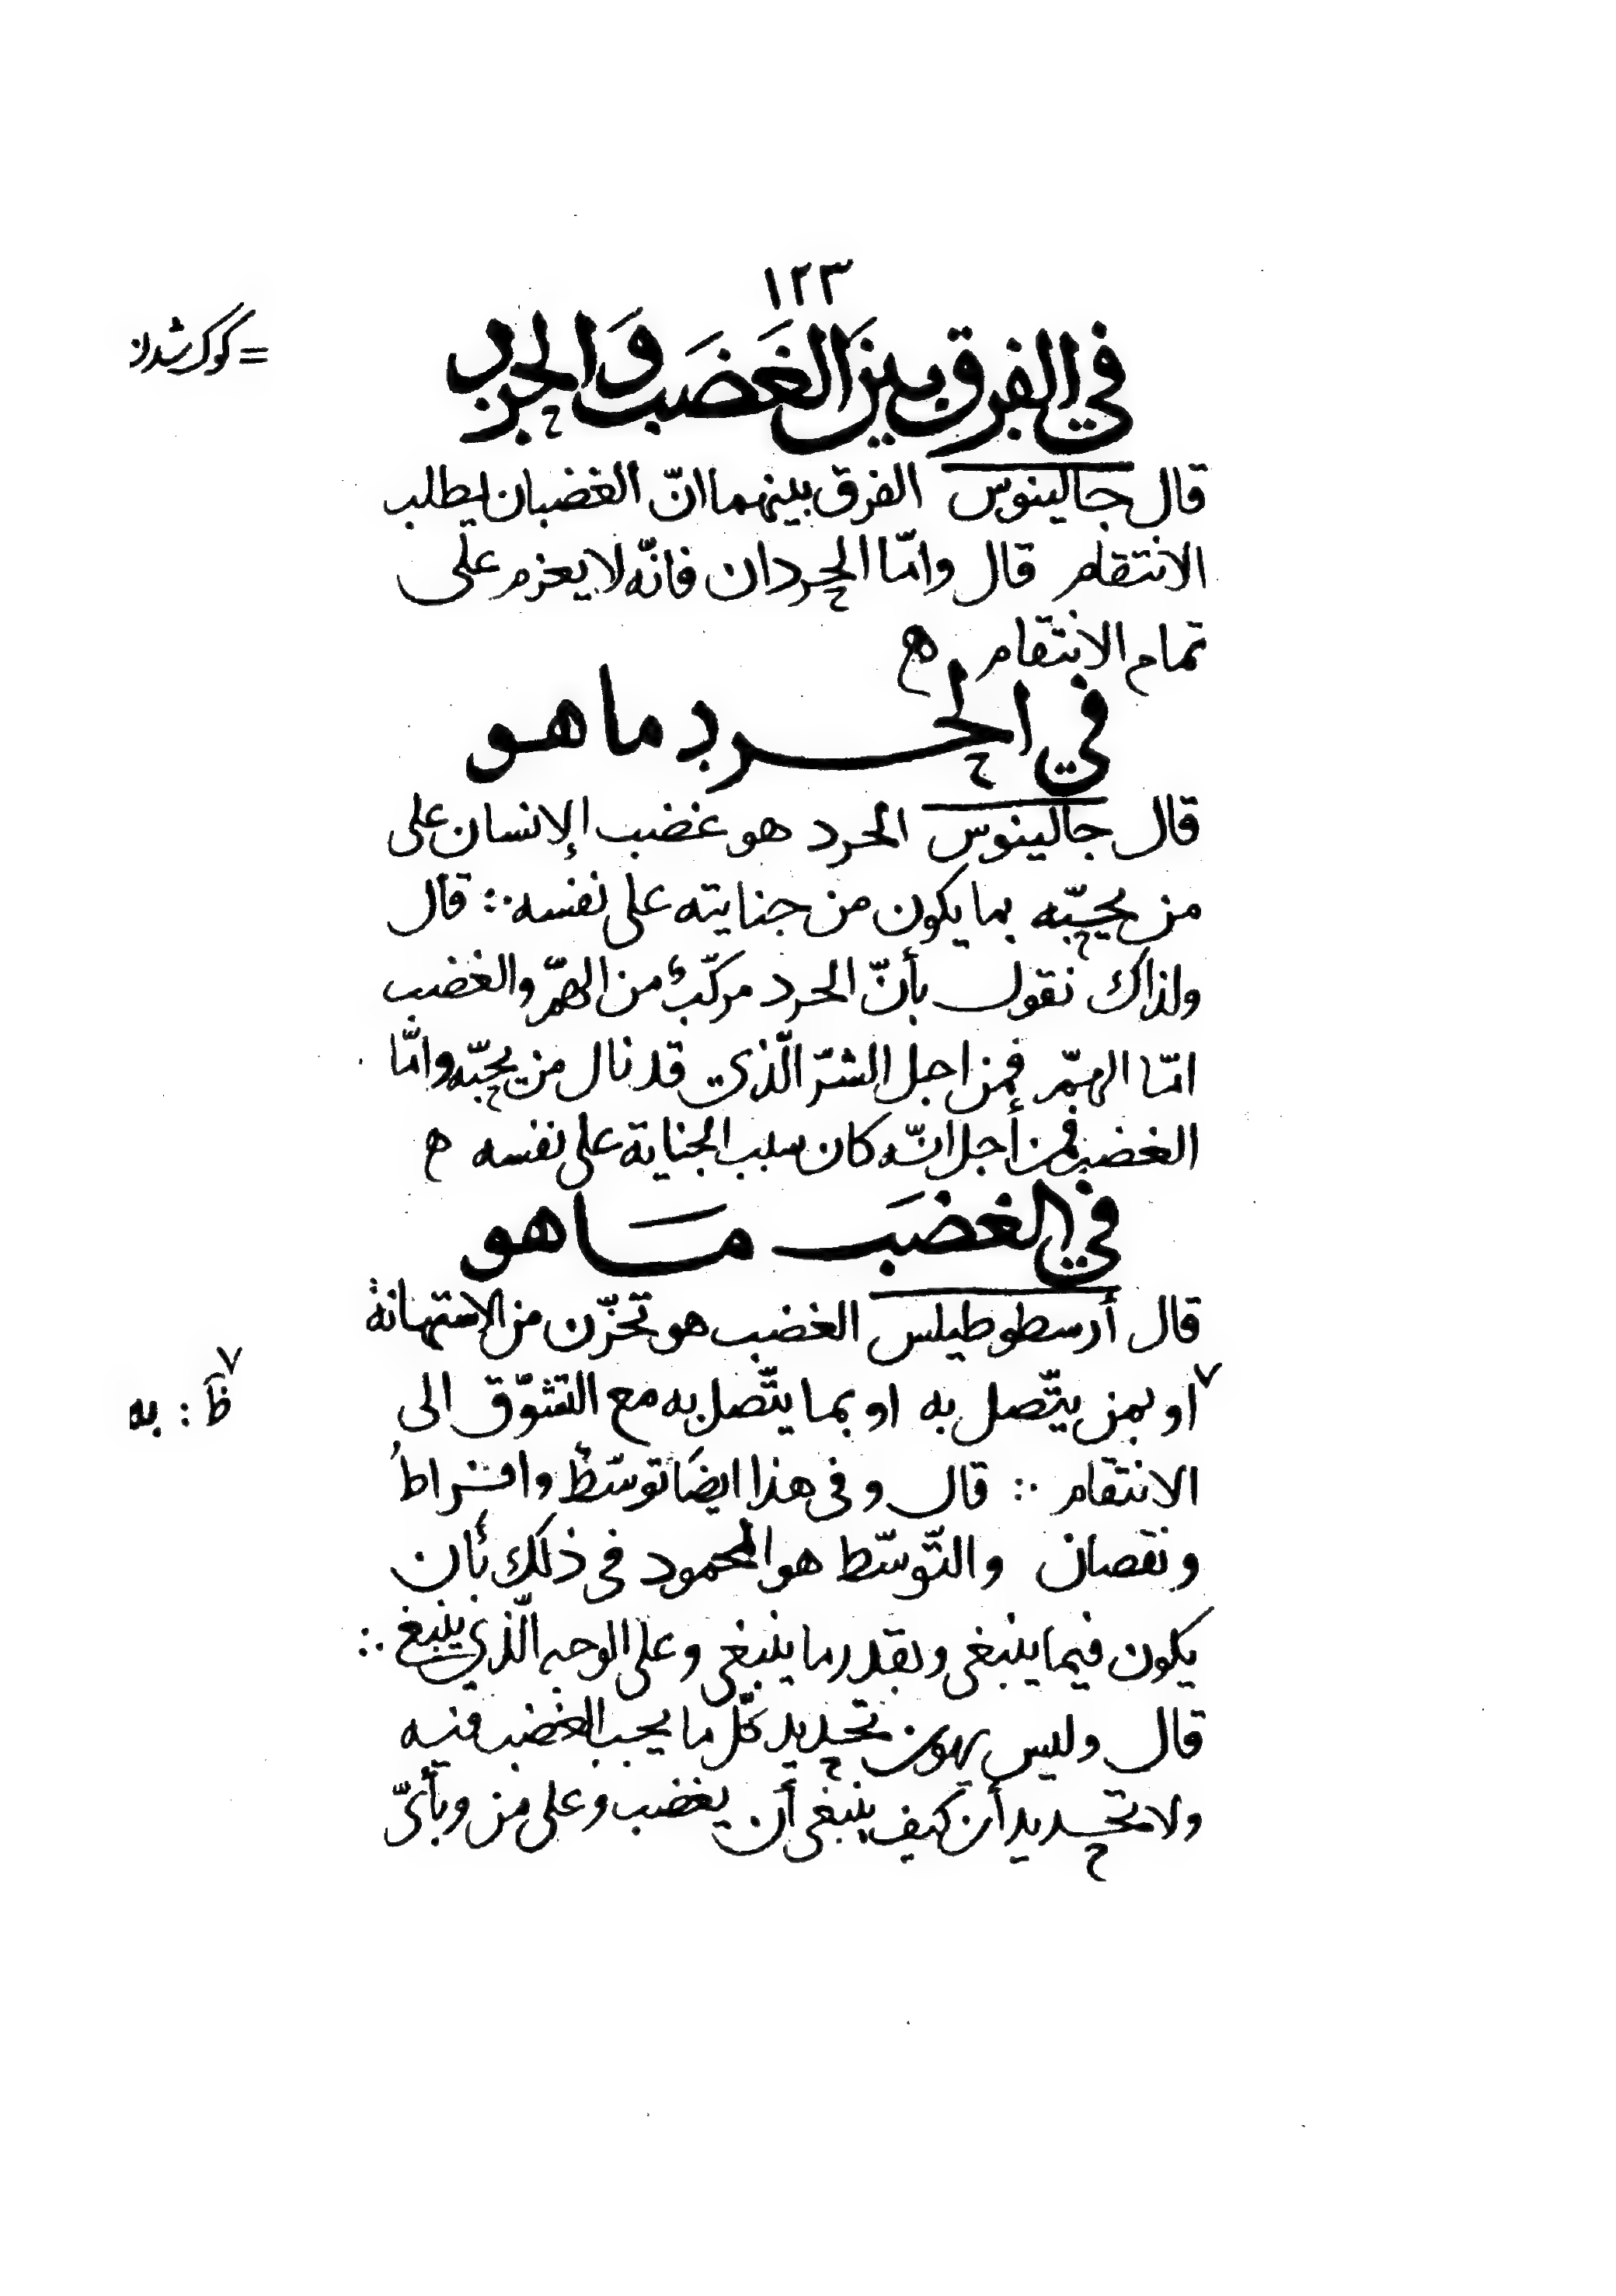 ١٢٣
في الفرق بين الغَضَب وَالحرد
= كوك شدن
قال جالينوس الفرق بينهما انّ الغضبان يطلب
الانتقام قال وامّا الحردان فانّه لا يعزم على
تمام الانتقام ه
في الحرد ما هو
قال جالينوس الحرد هو غضب الإنسان على
من يحبّه بما يكون من جنايته على نفسه ∴ قال
ولذاك نقول بأنّ الحرد مركّبٌ من الهمّ والغضب
امّا الهمّ فمن اجل الشرّ الّذي قد نال من يحبّه وامّا
الغضب فمن أجل انّه كان سبب الجناية على نفسه ه
في الغضَب مَا هو
قال أرسطوطيلس الغضب هو تحزّن من الاستهانة
٧ او بمن يتّصل به او بما يتّصل به مع التشوّق الى
٧ ظَ : به
الانتقام ∴ قال وفى هذا ايضًا توسّطٌ وافراطٌ
ونقصان والتّوسّط هو المحمود فى ذلك بأن
يكون فيما ينبغى وبقدر ما ينبغى وعلى الوجه الّذي ينبغي ∴
قال وليس يهون تحديد كلّ ما يجب الغضب فيه
ولا تحديد أن كيف ينبغى أن يغضب وعلى من وبأىّ